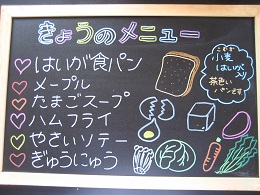 きょうのメニュー
はいが食パン
メープル
たまごスープ
ハムフライ
やさいソテー
ぎゅうにゅう
小麦
はいが
入り
茶色い
パンです